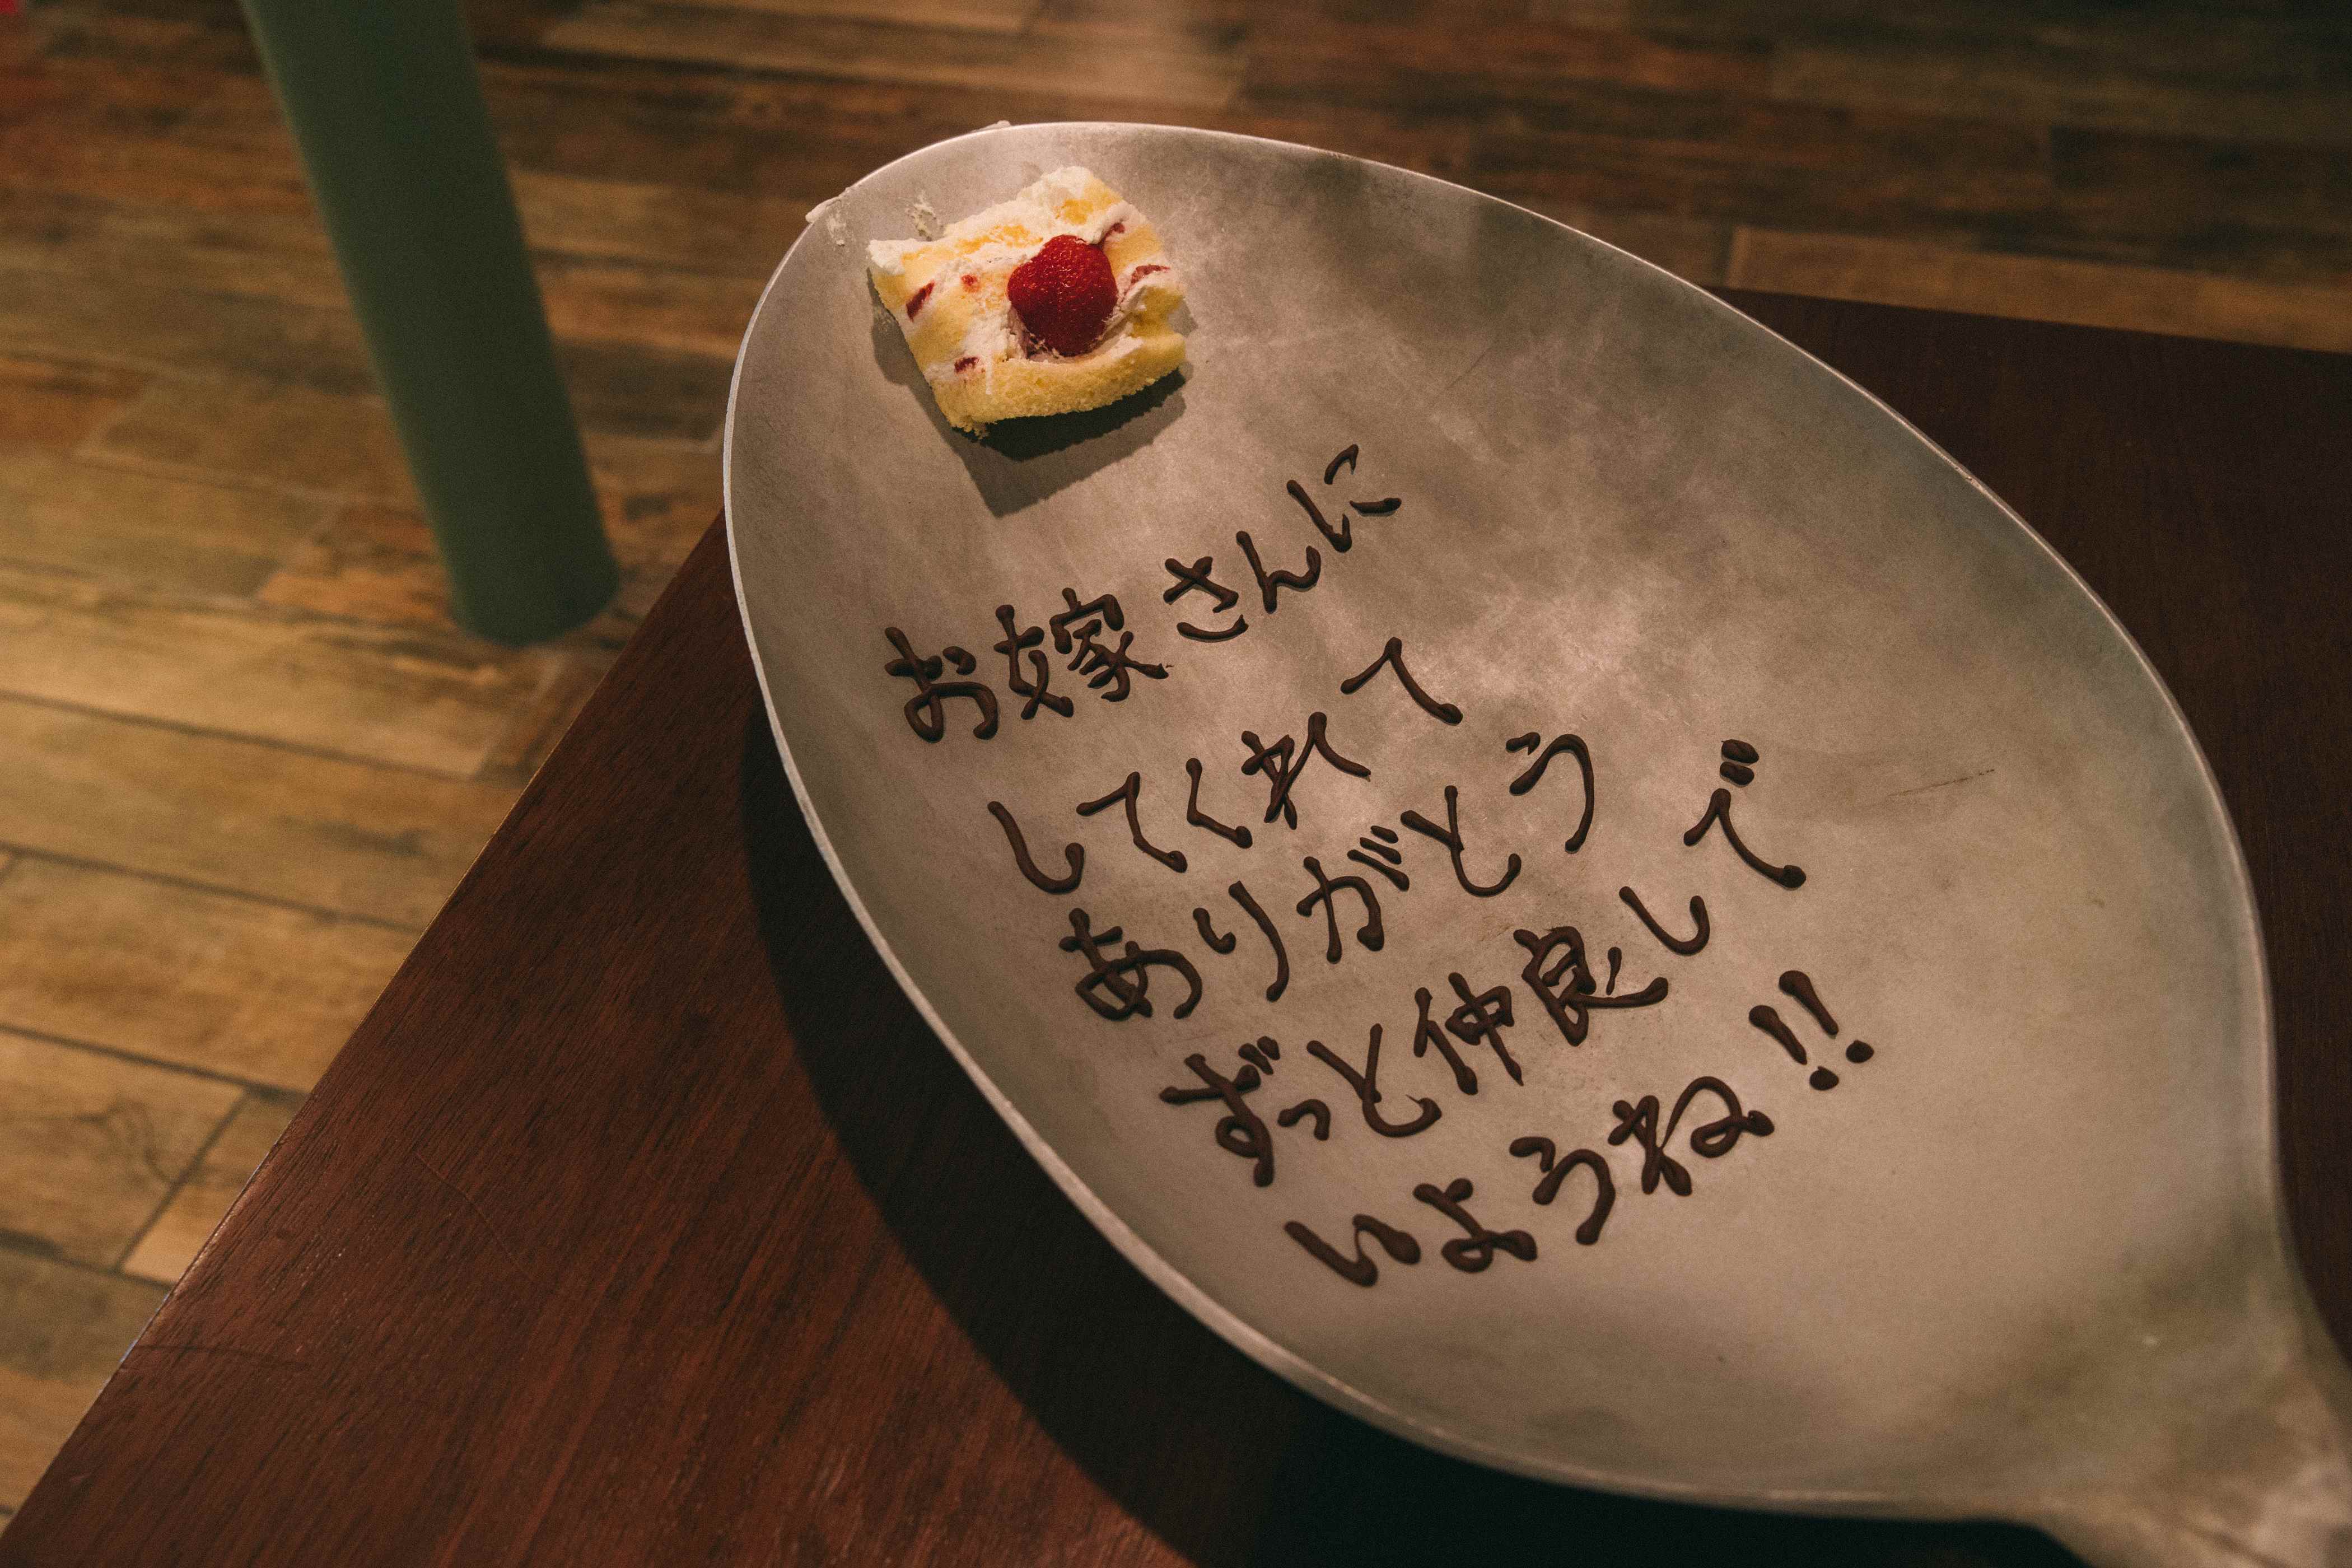 お嫁さんに
してくれて
ありがとう
ずっと仲良しで
いようね!!